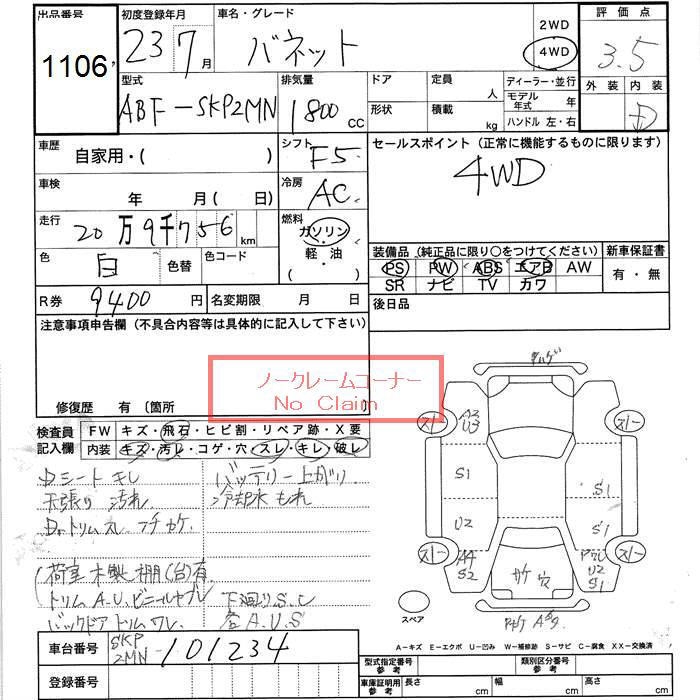 出品番号 初度登録年月 車名・グレード 2WD 評価点
1106 23 7月 バネット 4WD 3.5
型式 排気量 ドア 定員 人 ディーラー・並行 外装 内装
ABF-SKP2MN 1800cc 形状 積載 kg モデル年式 年 D
ハンドル 左・右
車歴 自家用・( ) シフト F5 セールスポイント(正常に機能するものに限ります)
車検 年 月(日) 冷房 AC 4WD
走行 20万9千756km 燃料 ガソリン
色 白 色替 色コード 軽油 ( ) 装備品(純正品に限り○をつけてください) 新車保証書
PS PW ABS エアB AW 有・無
SR ナビ TV カワ
R券 9400円 名変期限 月 日 後日品
注意事項申告欄(不具合内容等は具体的に記入して下さい)
ノークレームコーナー
No Claim
修復歴 有 〔箇所 〕
検査員記入欄 FW キズ・飛石・ヒビ割・リペア跡・X要
内装 キズ・汚レ・コゲ・穴・スレ・キレ・破レ
シート キレ バッテリー上がり
天張り 汚れ 冷却水もれ
トリム スレ フチカケ
荷室木製棚(台)有
トリムA.U.ビニール 下廻りS.C
バックドアトリムワレ 各A.U.S
スノー A2 U3 スノー
S1 S1
U2 S1
スノー A4 S2 U2 S1 スノー
サケ 穴
スペア
A-キズ E-エクボ U-凹み W-補修跡 S-サビ C-腐食 XX-交換済
車台番号 SKP2MN-101234
型式指定番号 参考 類別区分番号 参考
登録番号 車庫証明用参考 長さ cm 幅 cm 高さ cm